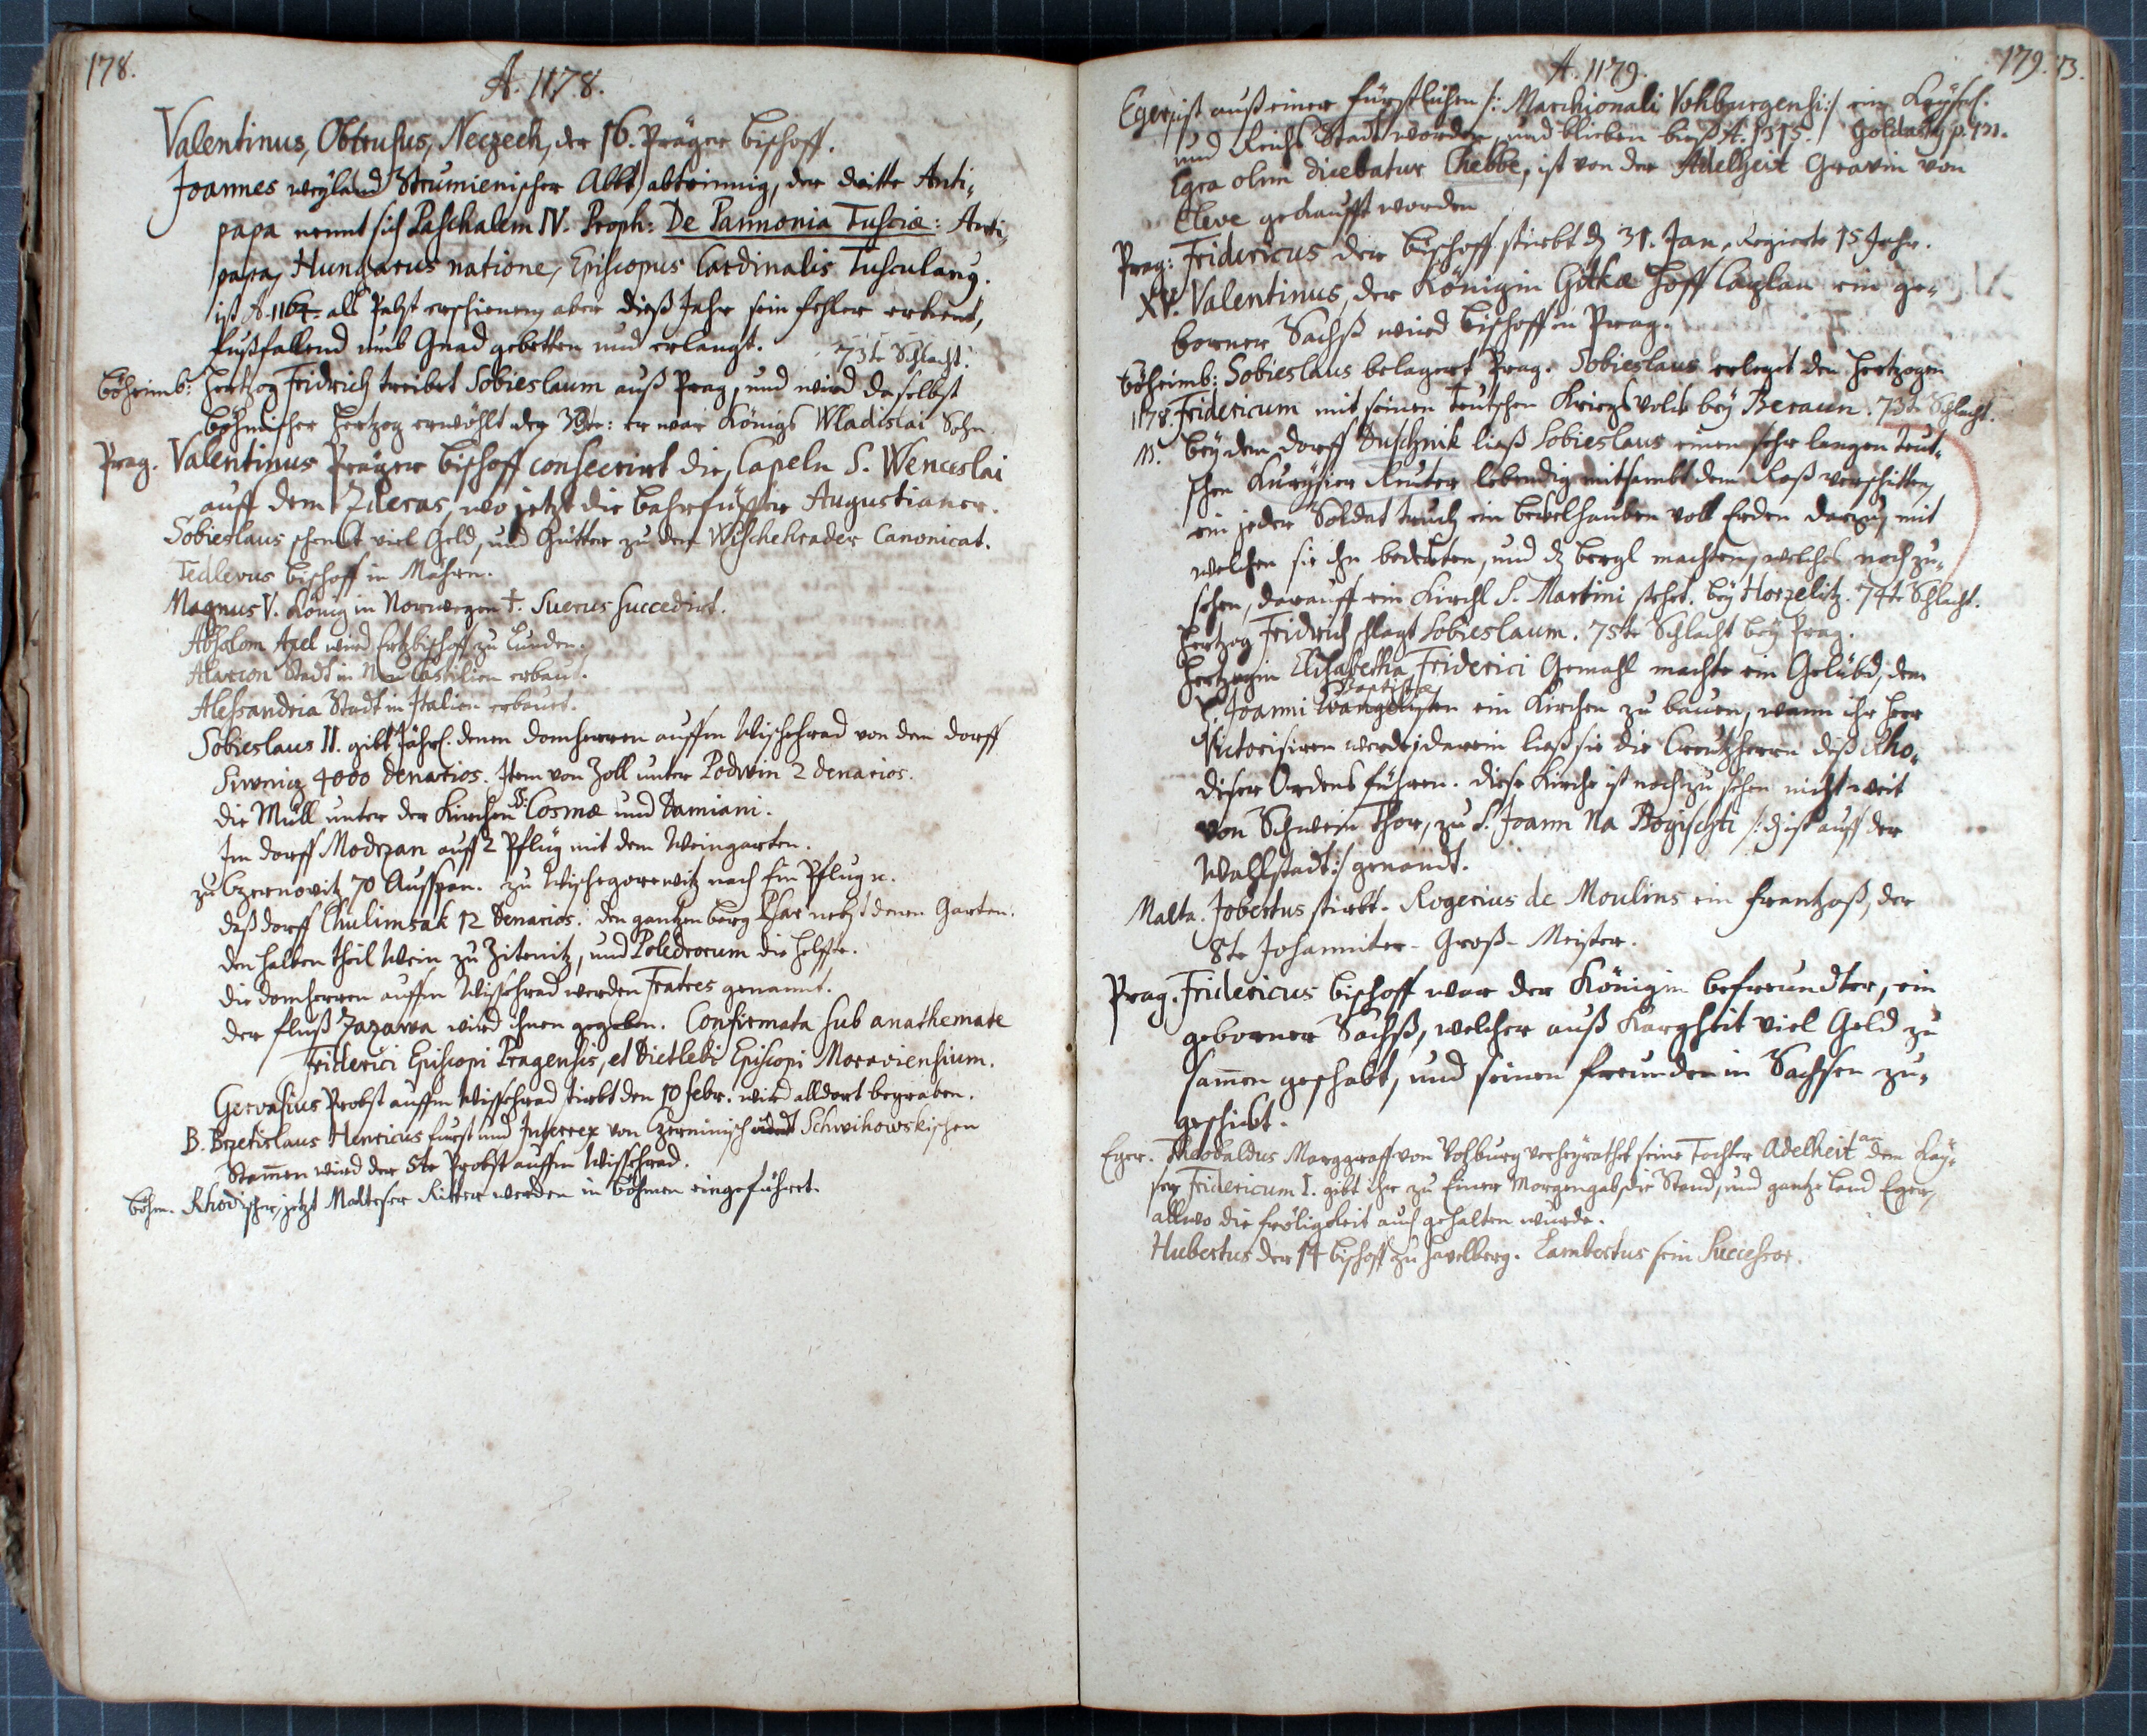 178.
A. 1178.
Valentinus, Obtrusus, Neczech, der 16. Präger bischoff.
Joannes weyland Strumienischer Abbt, abtrinnig, der dritte Anti„
papa nennt sich Paschalem IV. Proph: De Pannonia Tusciæ: Anti„
papa, Hungarus natione, Episcopus Cardinalis Tusculang.
ist A. 1164. als Pabst erschienen, aber dieß Jahr sein fehler erkent,
fußfallend umb Gnad gebetten und erlangt. 73te Schlacht.
böheimb: Hertzog Fridrich treibet Sobieslaum auß Prag, und wird daselbst
böhmischer Hertzog erwöhlt der 30te: er war Königs Wladislai Sohn.
Prag. Valentinus Präger bischoff consecrirt die Capeln S. Wenceslai
auff dem Zderas, wo jetzt die barfüsser Augustianer.
Sobieslaus schenckt viel Geld, und Gütter zu dem Wischehrader Canonicat.
Tedlevus bischoff in Mähren.
Magnus V. König in Norwegen †. Suerus succedirt.
Absolom Axel wird Ertzbischoff zu Lunden.
Alarcon Stadt in Neu Castilien erbaut.
Alessandria Stadt in Italien erbauet.
Sobieslaus II. gibt Jährl. denen domherren auffm Wischehrad von dem dorff
4000 denarios. Item von Zoll unter Podwin 2 denarios.
die Mühl unter der Kirchen SS. Cosmæ und Damiani.
Im dorff Modrzan auff 2 Pflüg mit dem Weingarten.
zu Czernovitz 70 Ausspan. zu Wischegorewitz nach Ein Pflug u.
daß dorff Chulimsak 12 denarios. den gantzen berg Psar nebst denen Garten.
den halben theil Wein zu Zitenitz, und Poledrorum die helffte.
die domherren auffm Wissehrad werden Fratres genannt.
der fluß Zazawa wird ihnen gegeben. Confirmata sub anathemate
Friderici Episcopi Pragensis, et Dietlebi Episcopi Moraviensium.
Gervasius Probst auffm Wissehrad stirbt den 10 febr. wird alldort begraben.
B. Brzetislaus Henricus fürst und Interrex von Czerninisch Schwihowskischen
Stammen wird der 5te Probst auffm Wissehrad.
böhm. Rhodischer, jetzt Malteser Ritter werden in böhmen eingeführet.
A. 1179.
179. 73.
Eger, ist auß einer Fürstlichen /: Marchionali Vohburgensi :/ ein Käyserl.
und Reichs Stadt worden, und blieben biß A. 1315. Goldast p. 131.
Egra olim dicebatur Chebbe, ist von der Adelheit Gravin von
Cleve gekaufft worden
Prag: Fridericus der bischoff stirbt d 31. Jan. Regierte 15 Jahr.
XV. Valentinus, der Königin Gitkæ Hoff Caplan ein ge„
borner Sachß wird bischoff in Prag.
böheimb: Sobieslaus belagert Prag. Sobieslaus erleget den Hertzogen
1178. Fridericum mit seinen Teutschen Kriegsvolck bey Beraun. 73te Schlacht.
bey dem dorff Duschnik ließ Sobieslaus einen sehr langen teut„
schen Kurysier Reuter lebendig mitsambt dem Roß verschitten,
ein jeder Soldat truch ein bekelhauben voll Erden darzu, mit
welchen sie ihn bedekten, und d bergl machten, welches noch zu„
sehen, darauff ein Kirchl S. Martini stehet. bey Horzelitz. 74te Schlacht.
Hertzog Fridrich schlagt Sobieslaum. 75te Schlacht bey Prag.
Hertzogin Elisabetha Friderici Gemahl machte ein Gelübd, dem
Baptistæ
S. Joanni Evangelisten ein Kirchen zu bauen, wann ihr Herr
Victorisiren werde, darein ließ sie die Creutzherrn diß Rho„
diser Ordens führen. diese Kirche ist noch zu sehen nicht weit
von Schwein Thor, zu S. Joann Na Bogischti /: d ist auff der
Wahlstadt :/ genandt.
Malta. Jobertus stirbt. Rogerius de Moulins ein Frantzoß, der
8te Johanniter-Groß-Meister.
Prag. Fridericus bischoff war der Königin befreundter, ein
geborner Sachß, welcher auß Kargheit viel Geld zu
sammen geschabt, und seinen freunden in Sachsen zu„
geschickt.
Eger. Theobaldus Marggraff von Vohburg verheyrathet seine Tochter Adelheit an dem Kay„
ser Fridericum I. gibt ihr zu Einer Morgengab die Stand, und gantze Land Eger,
allwo die fröligkeit auch gehalten wurde.
Hubertus der 14 bischoff zu Havelberg. Lambertus sein Successor.